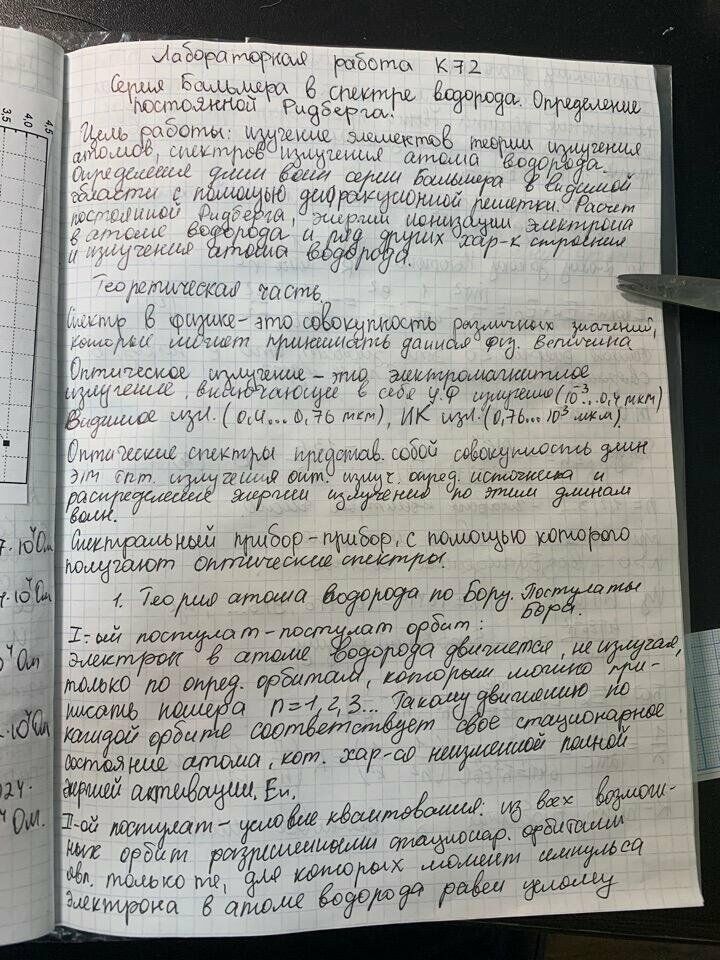 Лабораторная работа К72
Серия Бальмера в спектре водорода. Определение
постоянной Ридберга.
Цель работы: изучение элементов теории излучения
атомов, спектров излучения атома водорода.
Определение длин волн серии Бальмера в видимой
области с помощью дифракционной решетки. Расчет
постоянной Ридберга, энергии ионизации электрона
в атоме водорода и ряд других хар-к строения
и излучения атома водорода.
Теоретическая часть.
Спектр в физике - это совокупность различных значений,
которые может принимать данная физ. величина
Оптическое излучение - это электромагнитное
излучение, включающее в себе У.Ф излучение (10⁻³...0,4 мкм)
Видимое изл. (0,4...0,76 мкм), ИК изл. (0,76...10³ мкм).
Оптические спектры представ. собой совокупность длин
излучения опт. излуч. опред. источника и
распределение энергии излучения по этим длинам
волн.
Спектральный прибор - прибор, с помощью которого
получают оптические спектры.
1. Теория атома водорода по Бору. Постулаты
Бора.
I-ый постулат - постулат орбит:
Электрон в атоме водорода движется, не излучая,
только по опред. орбитам, которым можно при-
писать номера n=1,2,3... Такому движению по
каждой орбите соответствует свое стационарное
состояние атома, кот. хар-ся неизменной полной
энергией активации. En.
II-ой постулат - условие квантования: из всех возмож-
ных орбит разрешенными стационар. орбитами
явл. только те, для которых момент импульса
электрона в атоме водорода равен целому
4,5
4,0
3,5